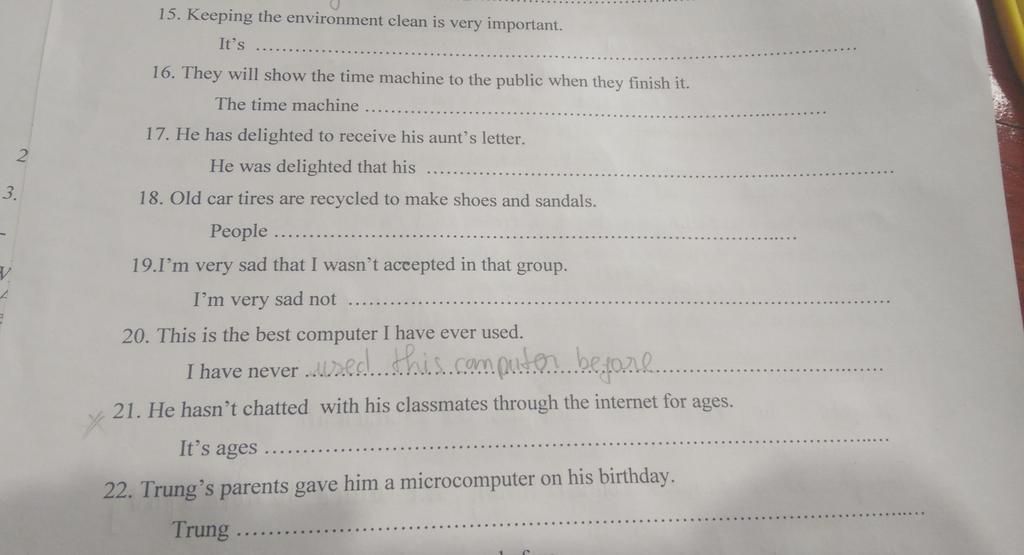 15. Keeping the environment clean is very important.
It's ........................................
16. They will show the time machine to the public when they finish it.
The time machine ........................................
2
17. He has delighted to receive his aunt's letter.
He was delighted that his ........................................
3.
18. Old car tires are recycled to make shoes and sandals.
People ........................................
19.I'm very sad that I wasn't accepted in that group.
I'm very sad not ........................................
20. This is the best computer I have ever used.
I have never ...used this computer before...........................
21. He hasn't chatted with his classmates through the internet for ages.
It's ages ........................................
22. Trung's parents gave him a microcomputer on his birthday.
Trung ........................................